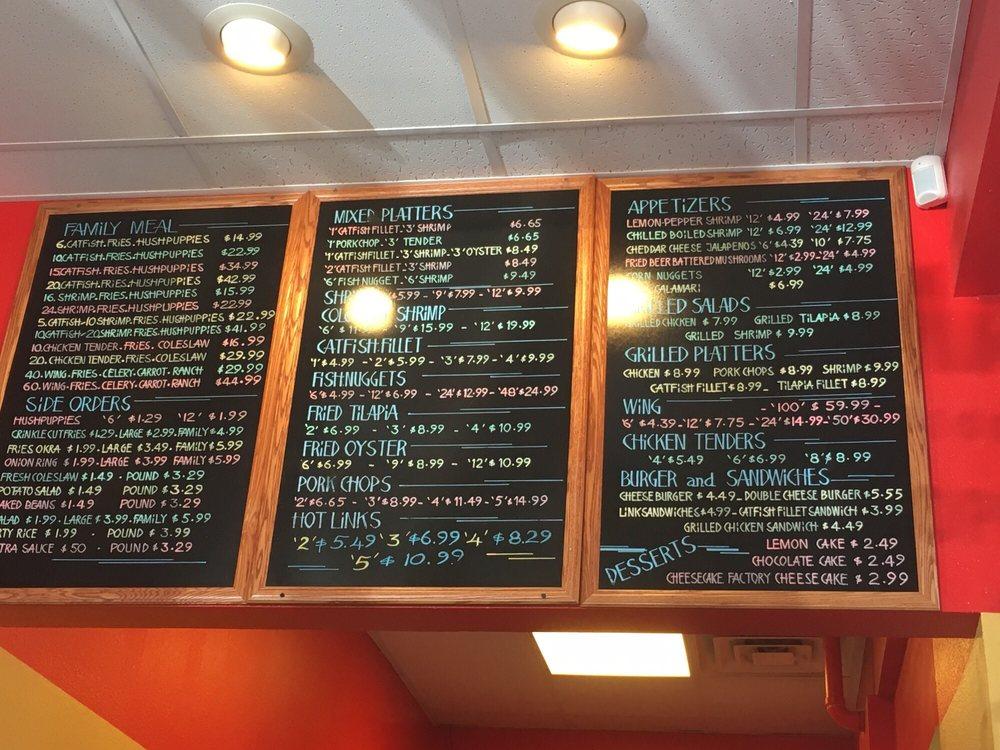 FAMILY MEAL
6.CATFISH.FRIES.HUSHPUPPIES $14.99
10.CATFISH.FRIES.HUSHPUPPIES $22.99
15CATFISH.FRIES.HUSHPUPPIES $34.99
20.CATFISH.FRIES.HUSHPUPPIES $42.99
16.SHRIMP.FRIES.HUSHPUPPIES $15.99
24.SHRIMP.FRIES.HUSHPUPPIES $22.99
5.CATFISH-10SHRIMP.FRIES.HUSHPUPPIES $22.99
10.CATFISH-20SHRIMP.FRIES.HUSHPUPPIES $41.99
10.CHICKEN TENDER.FRIES.COLESLAW $16.99
20.CHICKEN TENDER.FRIES.COLESLAW $29.99
40.WING.FRIES.CELERY.CARROT.RANCH $29.99
60.WING.FRIES.CELERY.CARROT.RANCH $44.99
SIDE ORDERS
HUSHPUPPIES '6' $1.29 '12' $1.99
CRINKLE CUT FRIES $1.29.LARGE $2.99.FAMILY $4.99
FRIES OKRA $1.99.LARGE $3.49.FAMILY $5.99
ONION RING $1.99.LARGE $3.99 FAMILY $5.99
FRESH COLESLAW $1.49 . POUND $3.29
POTATO SALAD $1.49 POUND $3.29
BAKED BEANS $1.49 POUND $3.29
SALAD $1.99.LARGE $3.99.FAMILY $5.99
RTY RICE $1.99 . POUND $3.99
TRA SAUCE $50 . POUND $3.29
MIXED PLATTERS
'1'CATFISH FILLET.'3' SHRIMP $6.65
'1'PORKCHOP.'3' TENDER $6.65
'1'CATFISHFILLET.'3'SHRIMP.'3'OYSTER $8.49
'2'CATFISHFILLET.'3'SHRIMP $8.49
'6'FISH NUGGET.'6'SHRIMP $9.49
SHR $5.99 - '9'$7.99 - '12'$9.99
SHRIMP
'6' $ '9'$15.99 - '12' $19.99
CATFISH FILLET
'1'$4.99 -'2'$5.99 - '3'$7.99 -'4'$9.99
FISH NUGGETS
'6'$4.99 - '12'$6.99 - '24'$12.99 - '48'$24.99
FRIED TILAPIA
'2'$6.99 - '3'$8.99 - '4'$10.99
FRIED OYSTER
'6'$6.99 - '9'$8.99 - '12'$10.99
PORK CHOPS
'2'$6.65 - '3'$8.99- '4'$11.49 -'5'$14.99
HOT LINKS
'2'$5.49 '3'$6.99 '4'$8.29
'5'$10.99
APPETIZERS
LEMON-PEPPER SHRIMP '12' $4.99 '24' $7.99
CHILLED BOILED SHRIMP '12' $6.99 '24' $12.99
CHEDDAR CHEESE JALAPENOS '6' $4.39 '10' $7.75
FRIED BEER BATTERED MUSHROOMS '12'$2.99-'24' $4.99
CORN NUGGETS '12'$2.99 '24' $4.99
CALAMARI $6.99
GRILLED SALADS
GRILLED CHICKEN $7.99 GRILLED TILAPIA $8.99
GRILLED SHRIMP $9.99
GRILLED PLATTERS
CHICKEN $8.99 PORK CHOPS $8.99 SHRIMP $9.99
CATFISH FILLET $8.99_ TILAPIA FILLET $8.99
WING - '100' $59.99 -
'6' $4.39-'12' $7.75 -'24'$14.99-'50'$30.99
CHICKEN TENDERS
'4'$5.49 '6'$6.99 '8'$8.99
BURGER and SANDWICHES
CHEESE BURGER $4.49_ DOUBLE CHEESE BURGER $5.55
LINK SANDWICHE$ $4.99_ CATFISH FILLET SANDWICH $3.99
GRILLED CHICKEN SANDWICH $4.49
DESSERTS
LEMON CAKE $2.49
CHOCOLATE CAKE $2.49
CHEESECAKE FACTORY CHEESE CAKE $2.99